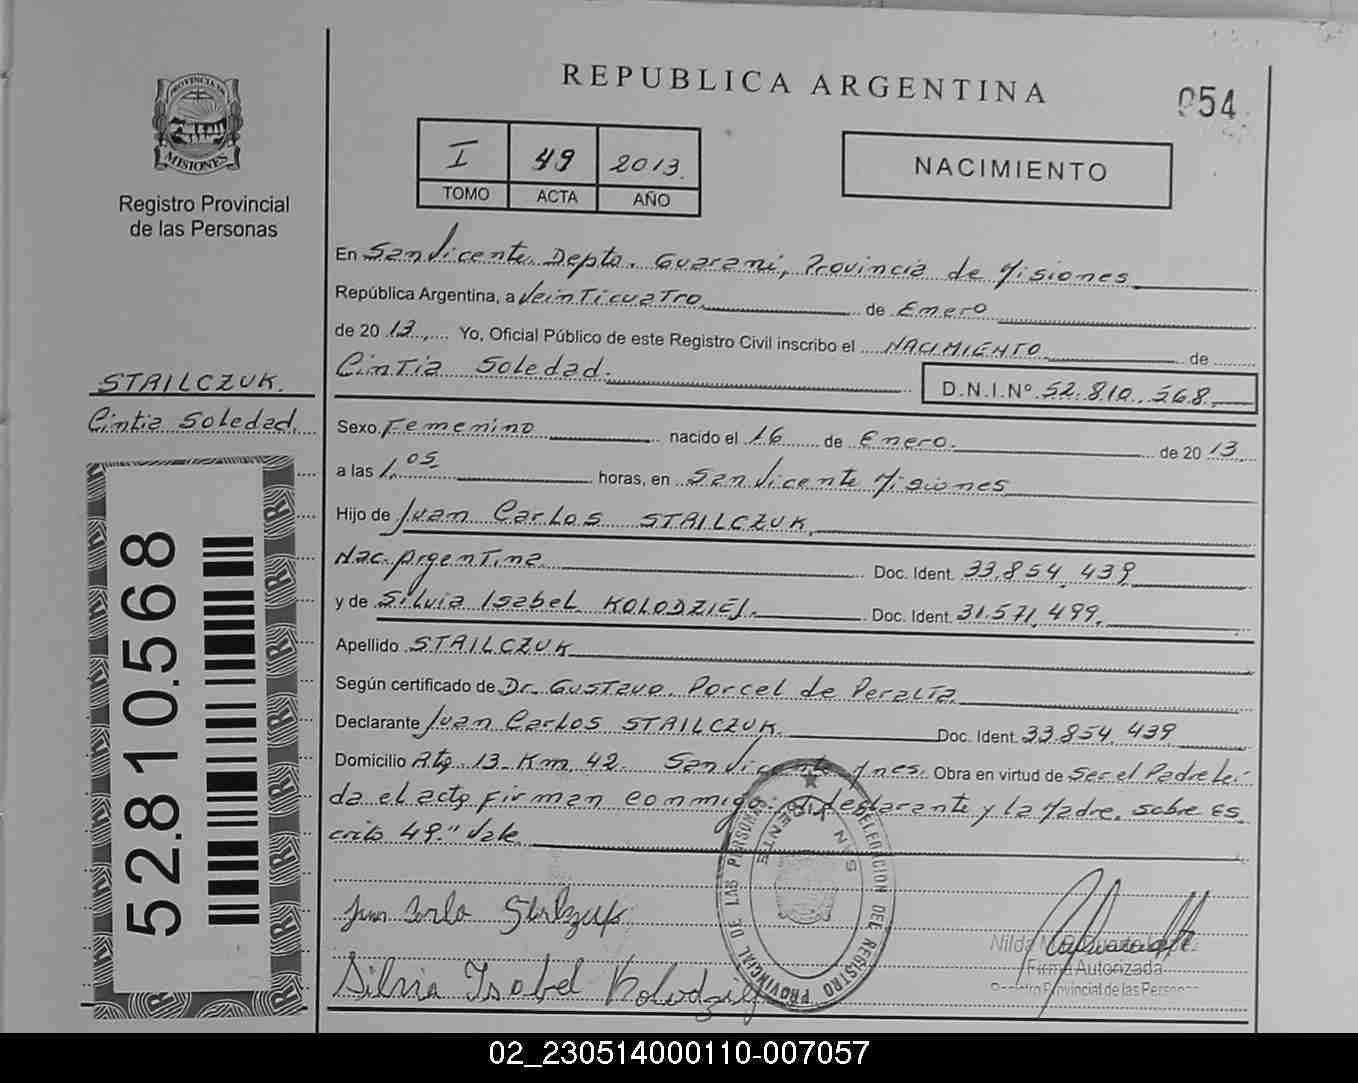 REPUBLICA ARGENTINA
054
PROVINCIA DE
MISIONES
Registro Provincial
de las Personas
I 49 2013.
TOMO ACTA AÑO
NACIMIENTO
En San Vicente, Depto. Guarani, Provincia de Misiones
República Argentina, a Veinticuatro de Enero
de 2013, Yo, Oficial Público de este Registro Civil inscribo el NACIMIENTO de
Cintia Soledad.
D.N.I.Nº 52.810.568.
STAILCZUK.
Cintia Soledad.
Sexo Femenino nacido el 16 de Enero. de 2013.
a las 1,05 horas, en San Vicente Misiones
Hijo de Juan Carlos STAILCZUK,
Nac. Argentina Doc. Ident. 33.854.439
y de Silvia Isabel KOLODZIEJ. Doc. Ident. 31.571.499.
Apellido STAILCZUK
Según certificado de Dr. Gustavo Porcel de Peralta
Declarante Juan Carlos STAILCZUK. Doc. Ident. 33.854.439
Domicilio Rta 13 Km 42. San Vicente Mnes. Obra en virtud de Ser el Padre Lei-
da el acta firman conmigo el declarante y la Madre. sobre Es
crito 49." Vale
52.810.568
DELEGACION DEL REGISTRO PROVINCIAL DE LAS PERSONAS
SAN VICENTE
Silvia Isabel Kolodziej
Firma Autorizada
Registro Provincial de las Personas
02_230514000110-007057